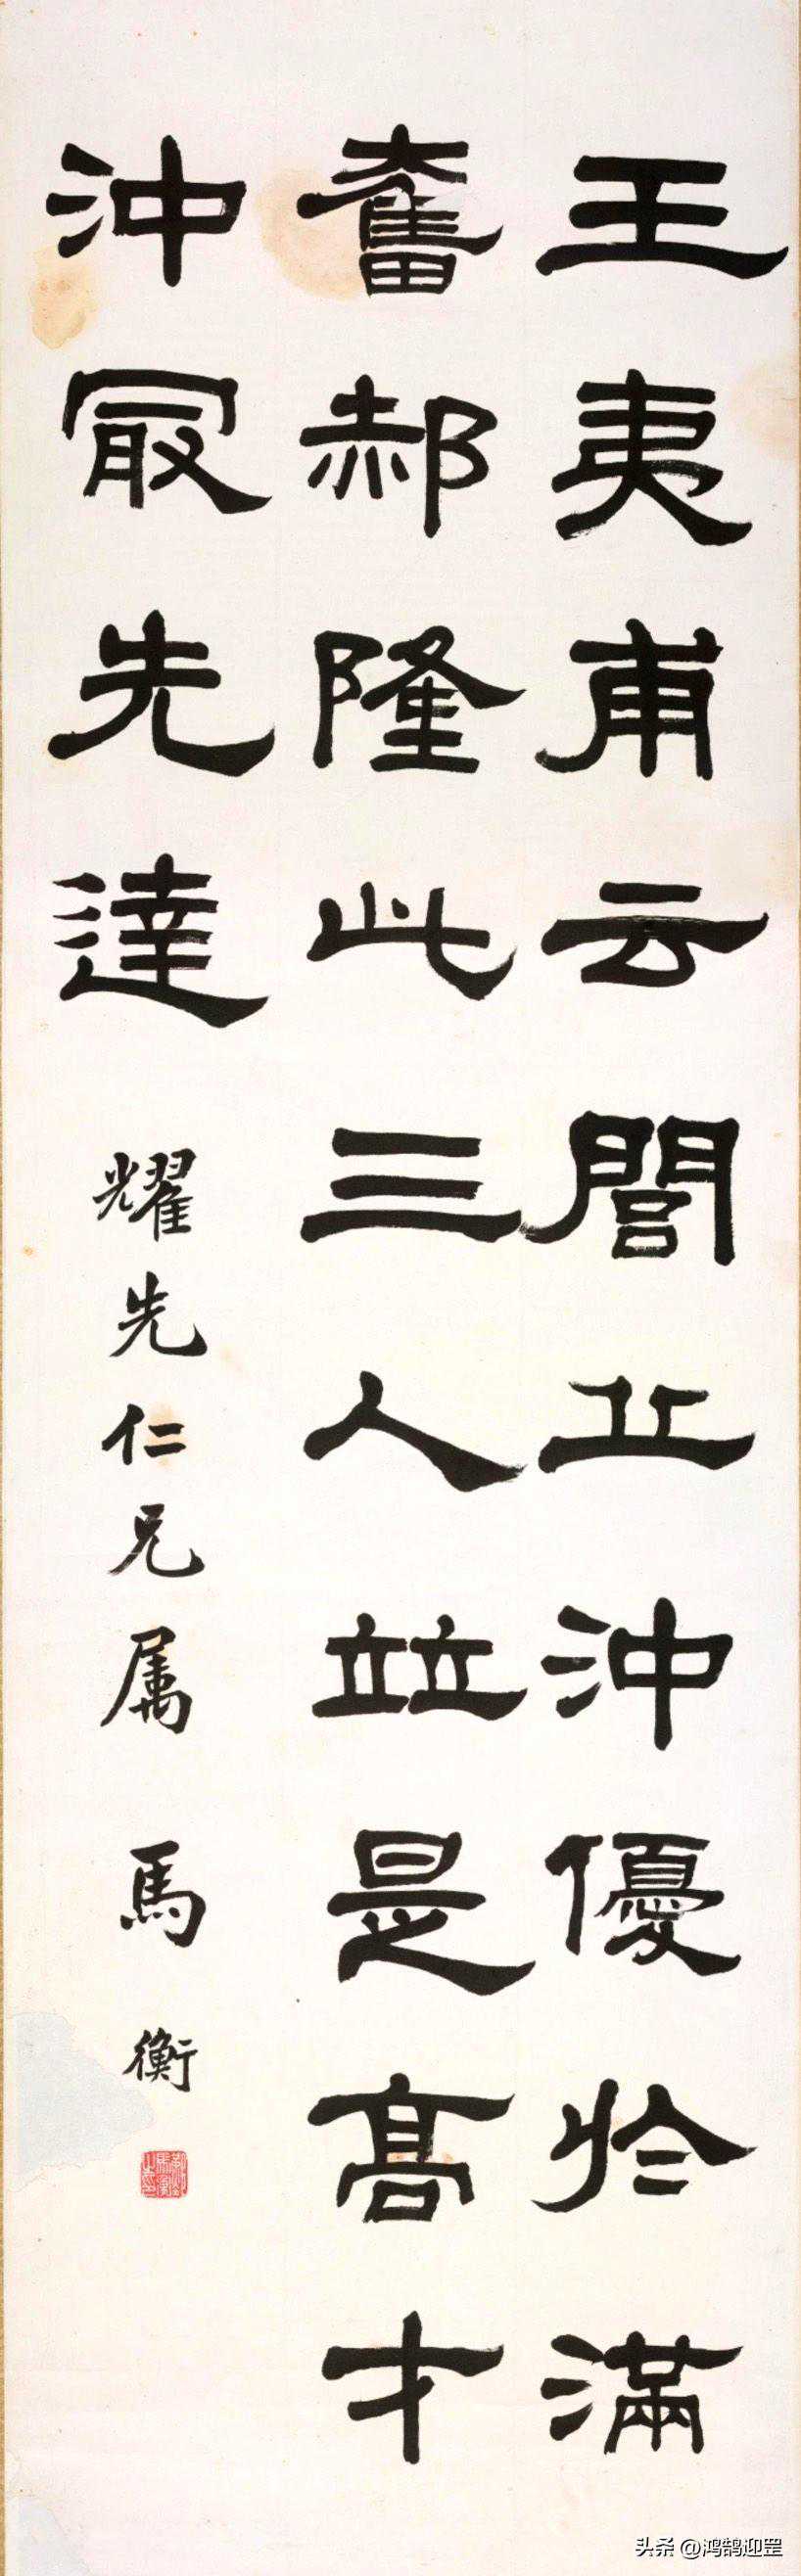 王夷甫云閭丘沖優於滿
奮郝隆此三人竝是高才
沖冣先達
耀先仁兄属 馬衡
头条 @鸿鹄迎罡